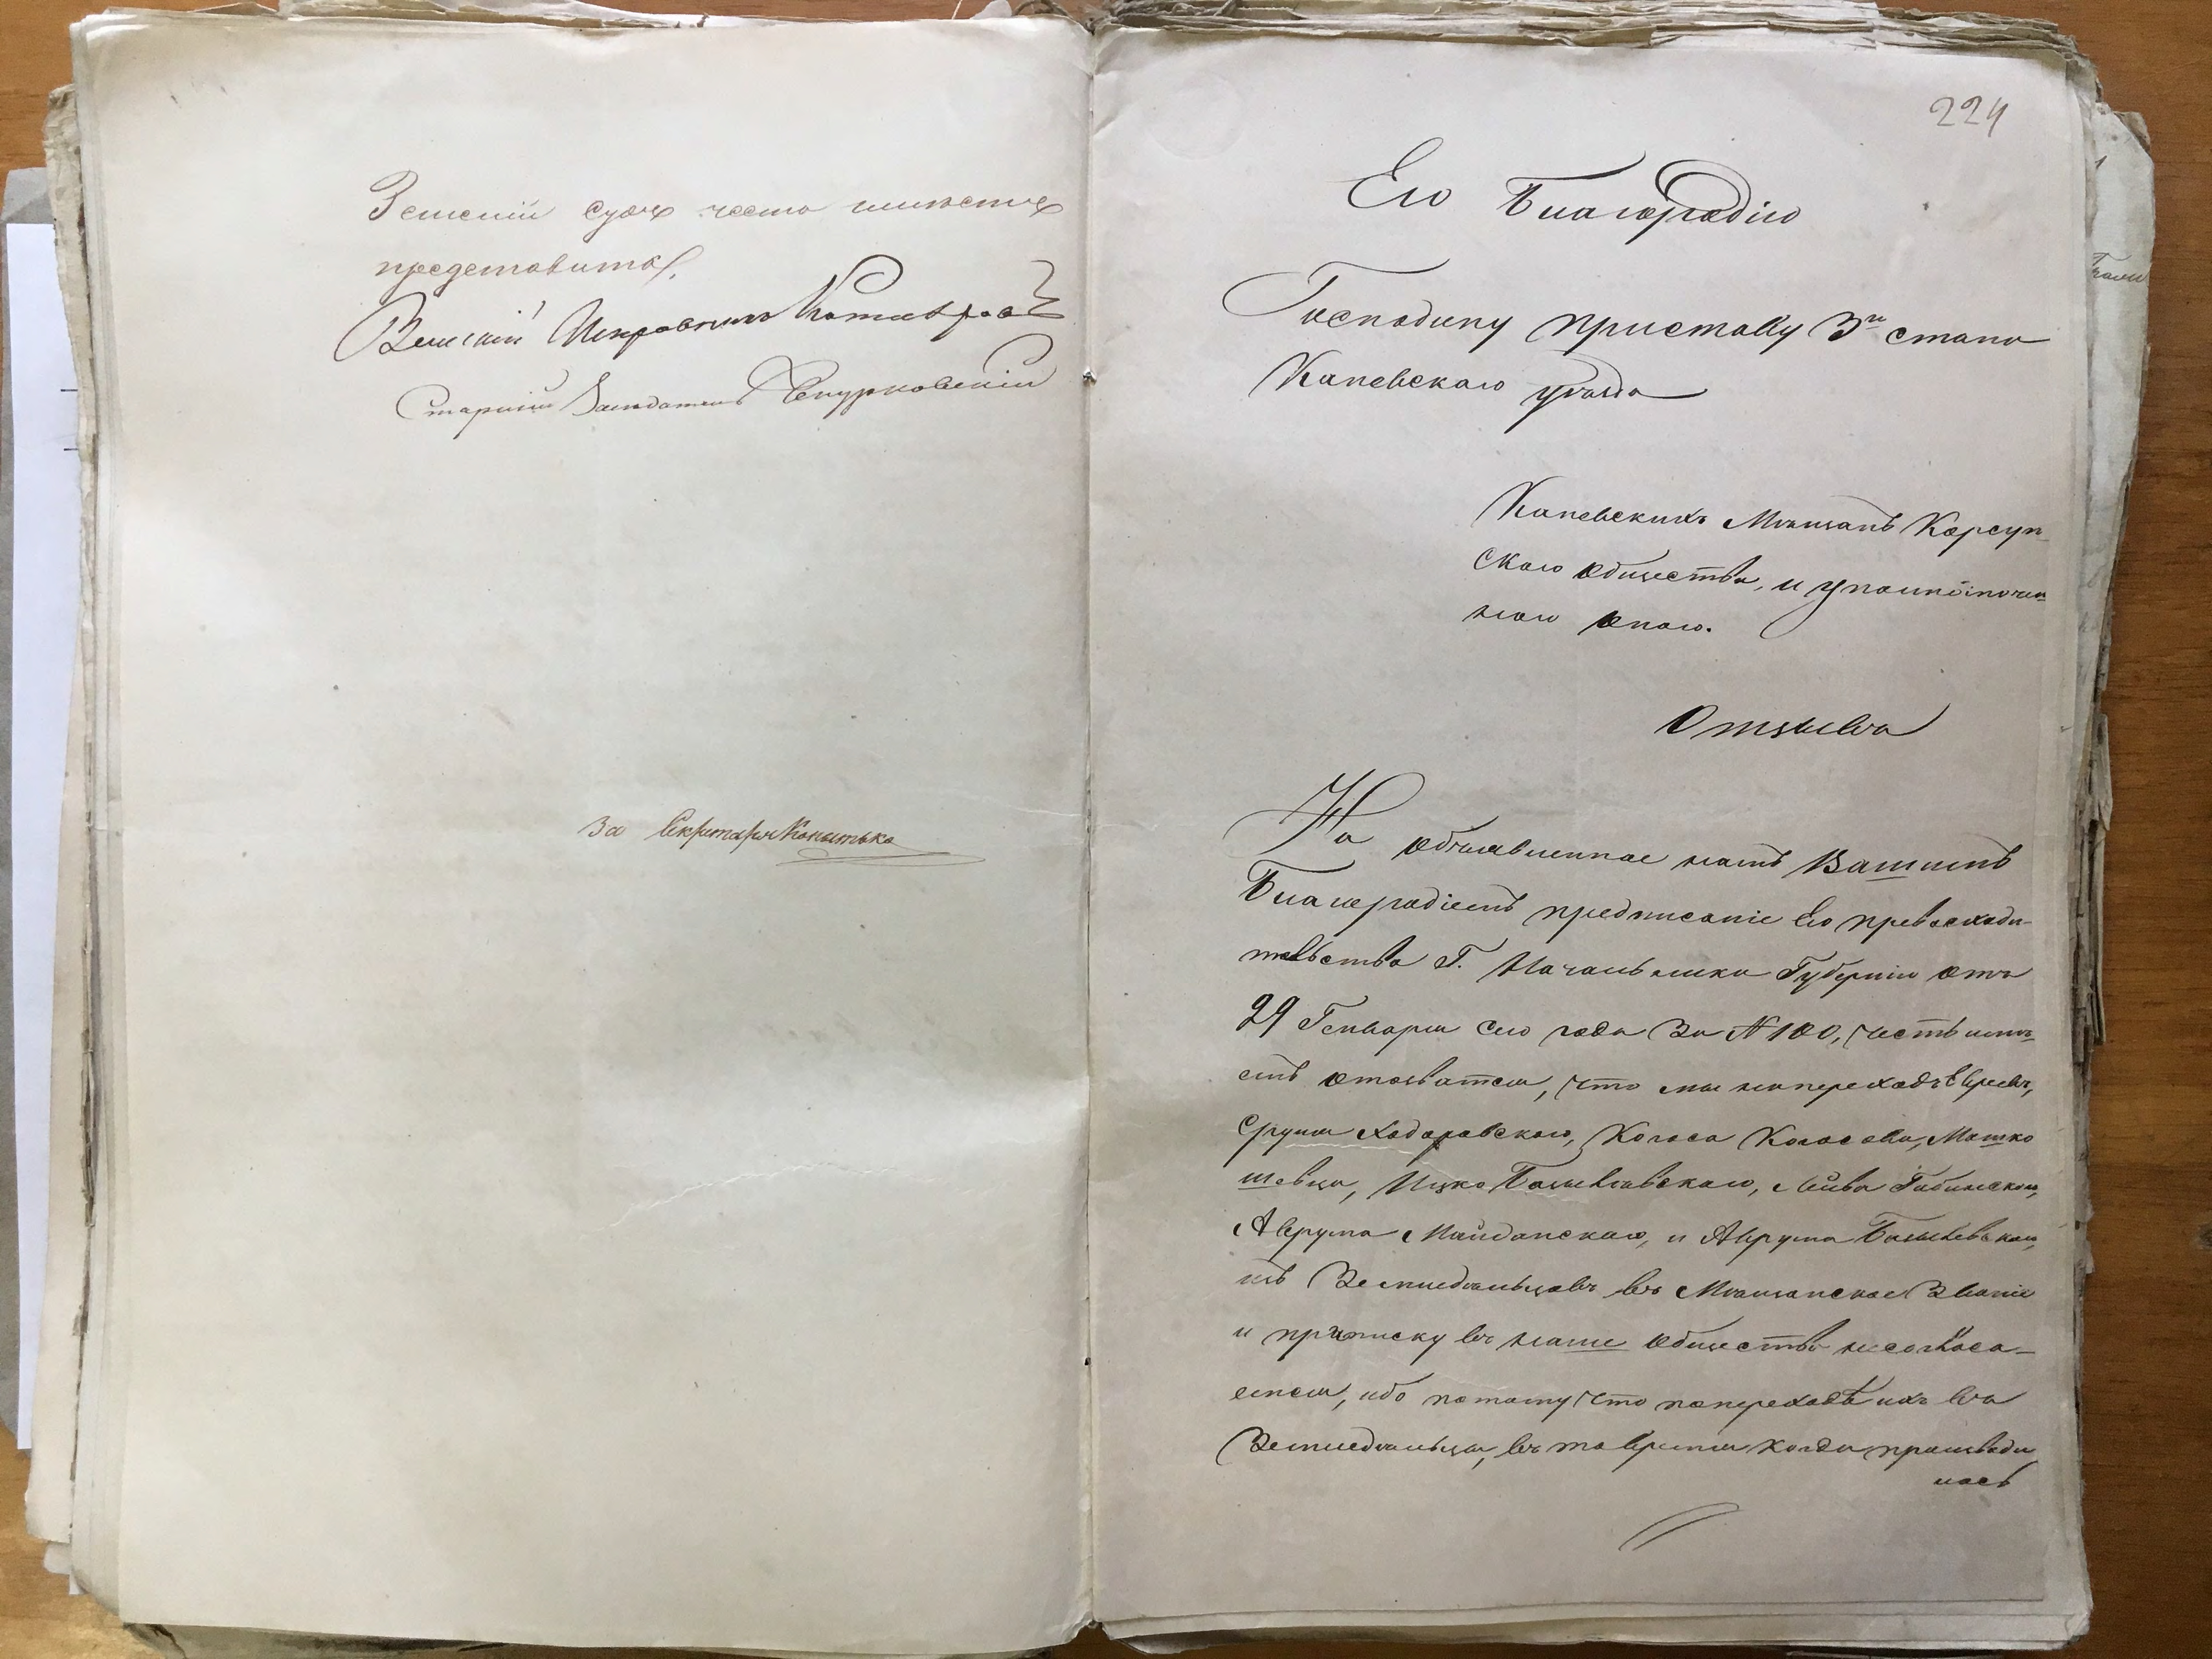 Земскій Судъ честь имѣетъ
представить.
Земскій Исправникъ
Старшій Засѣдатель
За Секретаря
224
Его Благородію
Господину приставу 3го стана
Каневскаго уѣзда
Каневскихъ Мѣщанъ Корсун-
скаго общества, и уполномочен
наго онаго.
Отзывъ
На объявленное намъ Вашимъ
Благородіемъ предписаніе Его превосходи-
тельства Г. Начальника Губерніи отъ
29 Генваря сего года За № 100, честь имѣ-
емъ отозватся, что мы на переходъ Евреевъ,
Сруля Ходоровскаго, Когоса Когосова, Мошко
шевца, Ицко, Лейба
Аврума Майданскаго, и Аврума
изъ Земледѣльцовъ въ Мѣщанское Званіе
и приписку въ наше общество несоглаша-
емся, ибо потому что попереходѣ ихъ въ
Земледѣльцы, въ то время когда производи
лась